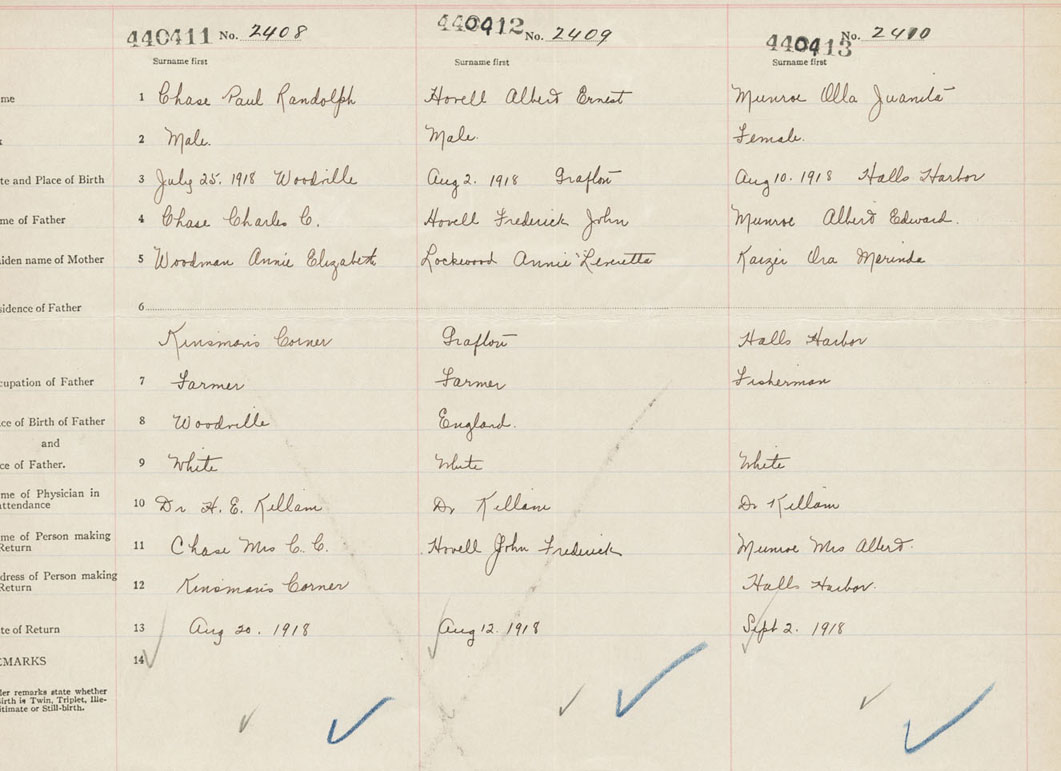 440411 No. 2408 440412 No. 2409 440413 No. 2410
Surname first Surname first Surname first
me 1 Chase Paul Randolph Hovell Albert Ernest Munroe Olla Juanita
2 Male. Male. Female.
te and Place of Birth 3 July 25. 1918 Woodville Aug 2. 1918 Grafton Aug 10. 1918 Halls Harbor
me of Father 4 Chase Charles C. Hovell Frederick John Munroe Albert Edward.
iden name of Mother 5 Woodman Annie Elizabeth Lockwood Annie Leveretta Kaizer Ora Merinda
sidence of Father 6
Kinsman's Corner Grafton Halls Harbor
cupation of Father 7 Farmer Farmer Fisherman
ce of Birth of Father 8 Woodville England.
and
ce of Father. 9 White White White
me of Physician in
attendance 10 Dr H. E. Killam Dr Killam Dr Killam
me of Person making
Return 11 Chase Mrs C. C. Hovell John Frederick Munroe Mrs Albert.
dress of Person making
Return 12 Kinsman's Corner Halls Harbor.
te of Return 13 Aug 20. 1918 Aug 12. 1918 Sept 2. 1918
EMARKS 14
der remarks state whether
irth is Twin, Triplet, Ille-
itimate or Still-birth.